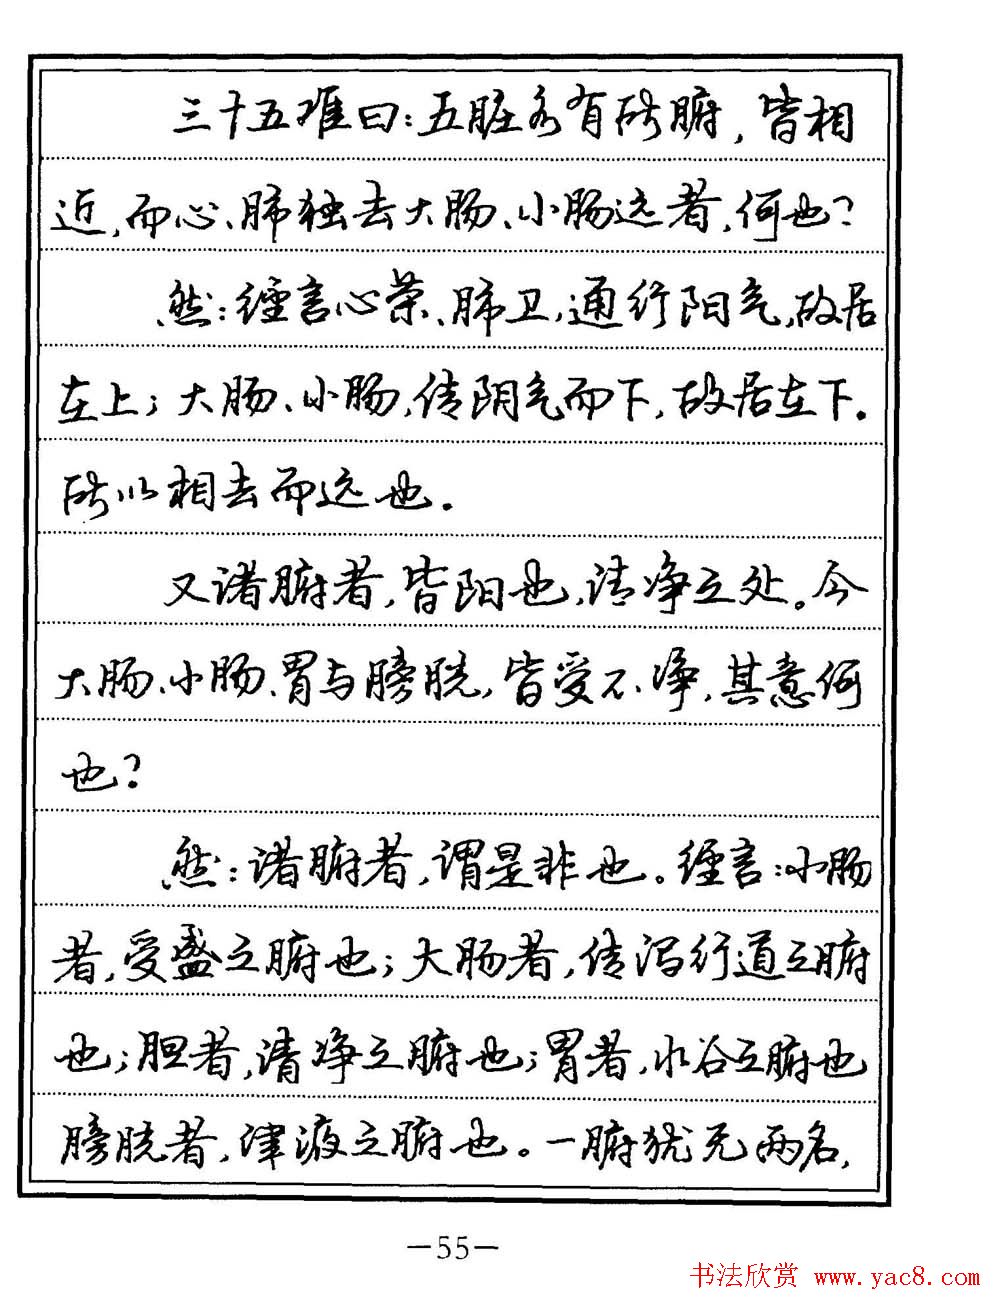 三十五难曰：五脏各有所腑，皆相
近，而心、肺独去大肠、小肠远者，何也？
然：经言心荣、肺卫，通行阳气，故居
在上；大肠、小肠，传阴气而下，故居在下。
所以相去而远也。
又诸腑者，皆阳也，清净之处。今
大肠、小肠、胃与膀胱，皆受不净，其意何
也？
然：诸腑者，谓是非也。经言：小肠
者，受盛之腑也；大肠者，传泻行道之腑
也；胆者，清净之腑也；胃者，水谷之腑也
膀胱者，津液之腑也。一腑犹无两名，
—55—
书法欣赏 www.yac8.com